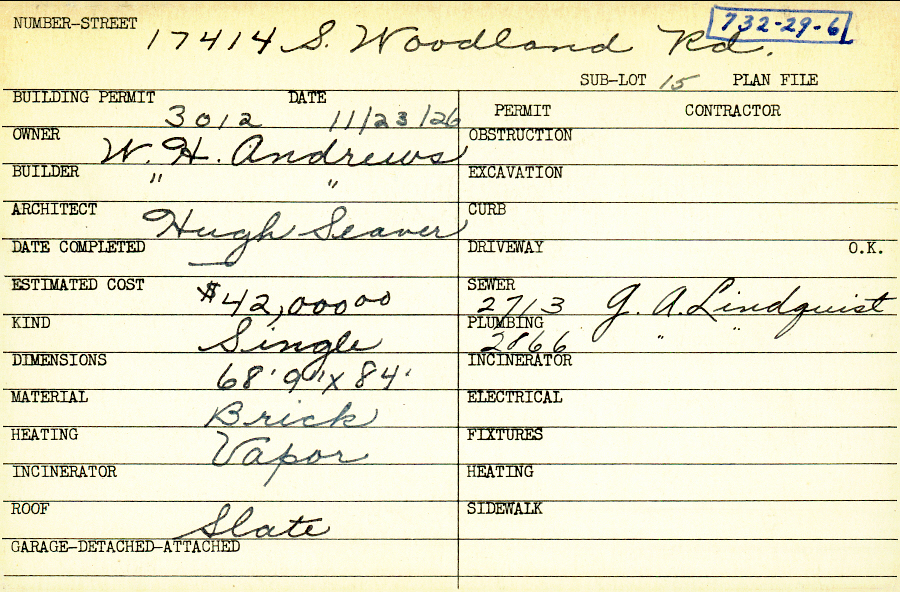 NUMBER-STREET 17414 S. Woodland Rd. 732-29-6
SUB-LOT 15 PLAN FILE
BUILDING PERMIT 3012 DATE 11/23/26
OWNER W. H. Andrews
BUILDER " "
ARCHITECT Hugh Seaver
DATE COMPLETED —
ESTIMATED COST $42,000.00
KIND Single
DIMENSIONS 68'9" x 84'
MATERIAL Brick
HEATING Vapor
INCINERATOR
ROOF Slate
GARAGE-DETACHED-ATTACHED
PERMIT CONTRACTOR
OBSTRUCTION
EXCAVATION
CURB
DRIVEWAY O.K.
SEWER 2713 G. A. Lindquist
PLUMBING 2866 " "
INCINERATOR
ELECTRICAL
FIXTURES
HEATING
SIDEWALK